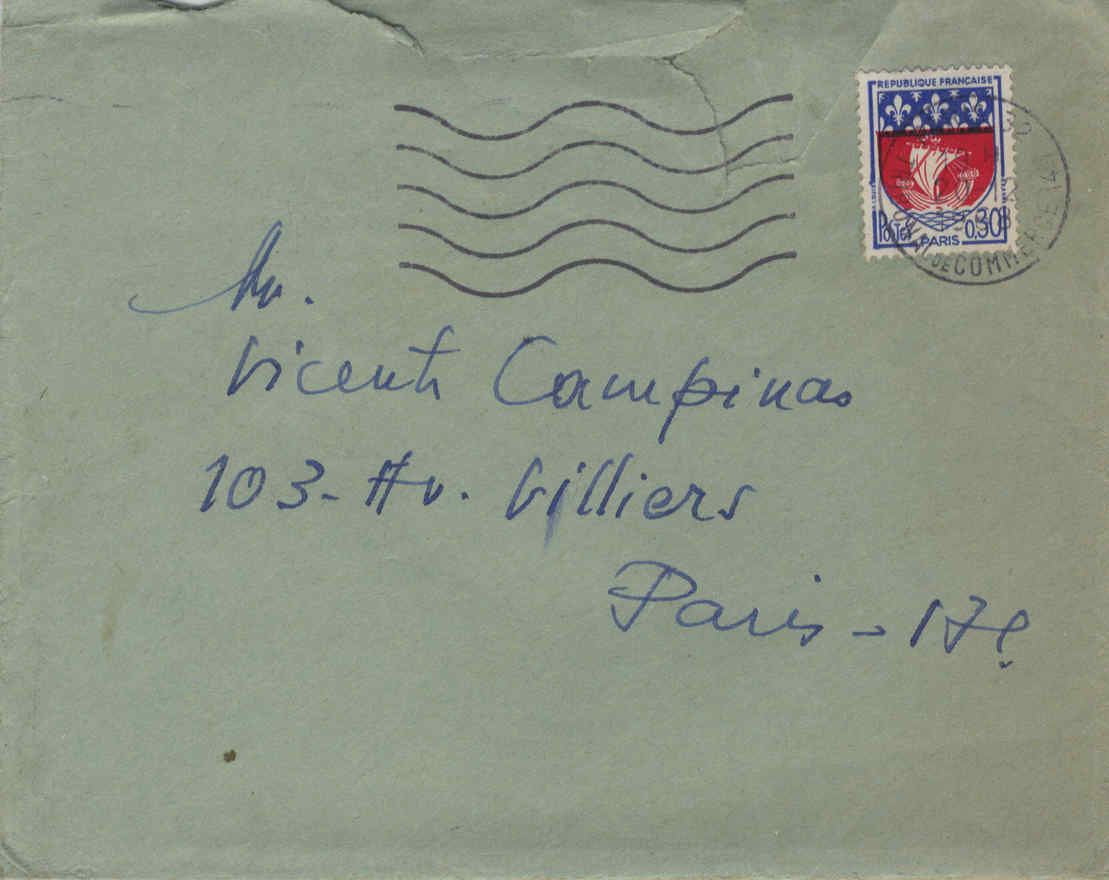 REPUBLIQUE FRANÇAISE
POSTES PARIS 0,30
DE COMMERCE
Mr.
Vicente Campinas
103-Av. Villiers
Paris-17e